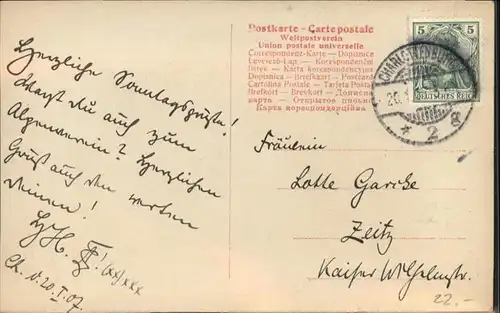 Postkarte - Carte postale
Weltpostverein
Union postale universelle
Correspondenz-Karte - Dopisnice
Levelező-Lap. - Korespondenční
lístek - Karta korespondencyjna
Dopisnica - Briefkaart - Postcard
Cartolina Postale - Tarjeta Posta
Brefkort - Brevkort - Дописна
карта - Открытое письмо
Карта кореспондерційна
5 5
DEUTSCHES REICH
CHARLOTTENBURG
20.1
* 2 g
Herzliche Sonntagsgrüße!
du auch zum
Alpenverein? Herzlichen
Gruß auch den werten
Deinen!
(xx) xxx
Ch. d. 20. I. 07.
Fräulein
Lotte Garcke
Zeitz
Kaiser Wilhelmstr.
22.-